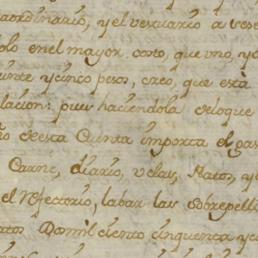 raordinario, y el vestuario a vese
dolo en el mayor costo, que uno, y o
veinte y cinco pesos, creo, que està
lacion: pues haciendola seloque
ño de esta Quinta importa el gas
Carne, diario, velas, Platos, y
el refectorio, labar las sobrepelli
tos Domil ciento cinquenta y c